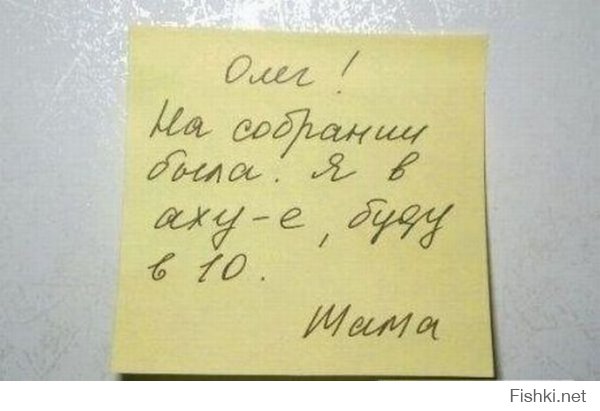 Олег!
На собрании
была. Я в
аху-е, буду
в 10.
Мама
Fishki.net